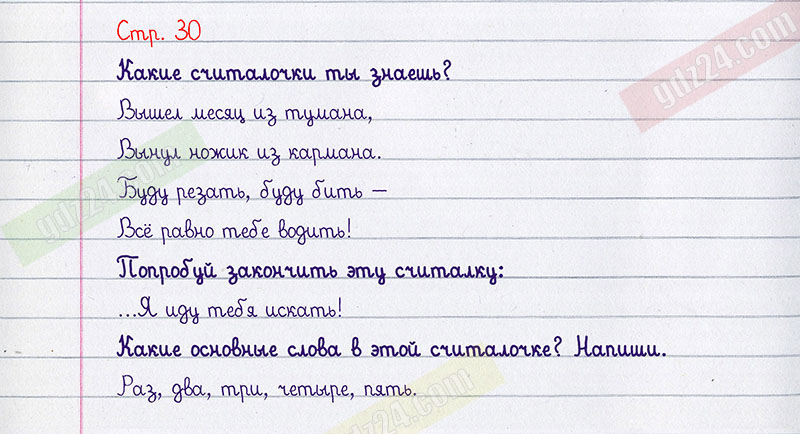 Стр. 30
gdz24.com
Какие считалочки ты знаешь?
Вышел месяц из тумана,
Вынул ножик из кармана.
Буду резать, буду бить –
Всё равно тебе водить!
gdz24.com
Попробуй закончить эту считалку:
...Я иду тебя искать!
Какие основные слова в этой считалочке? Напиши.
Раз, два, три, четыре, пять.
gdz24.com